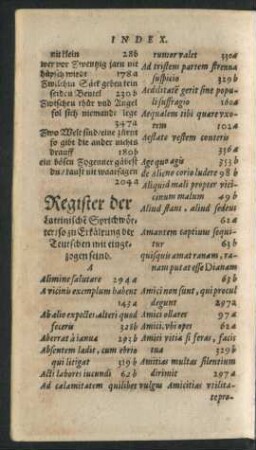 INDEX.
nit klein 28b
wer vor Zwentzig jarn nit
hüpsch wirdt 178a
Zwilchin Säck geben kein
seiden Beutel 230b
Zwischen thür und Angel
sol sich niemandt lege
347a
Zwo Welt sind: eine zürnt
so gibt die ander nichts
drauff 180b
204a
Register der
Lateinischē Sprichwör-
ter: so zu Erklärung der
Teutschen mit einge-
zogen seind.
A
A limine salutare 294a
A vicinis exemplum habent
143a
Ab alio expectes, alteri quod
feceris 328b
Aberrat à ianua 293b
Absentem lædit, cum ebrio
qui litigat 319b
Acti labores iucundi 62b
Ad calamitatem quilibet
rumor valet 330a
Ad tristem partem strenua
suspicio 329b
Aedilitatē gerit sine popu-
li suffragio 160a
Aequalem tibi quære vxo-
rem 102a
Aestate vestem conteris
336a
Age quo agis 353b
de Alieno corio ludere 98b
Aliquid mali propter vici-
cinum malum 49b
Aliud stans, aliud sedens
61a
Amantem taptiuus sequi-
tur 63b
quisquis amat ranam, ra-
nam putat esse Dianam
83b
Amici non sunt, qui procul
degunt 297a
Amici ollares 97a
Amici, vbi opes 62a
Amici vitia si feras, facis
tua 329b
Amicitias multas silentium
dirimit 297a
vulgus Amicitias vtilita-
te pro-